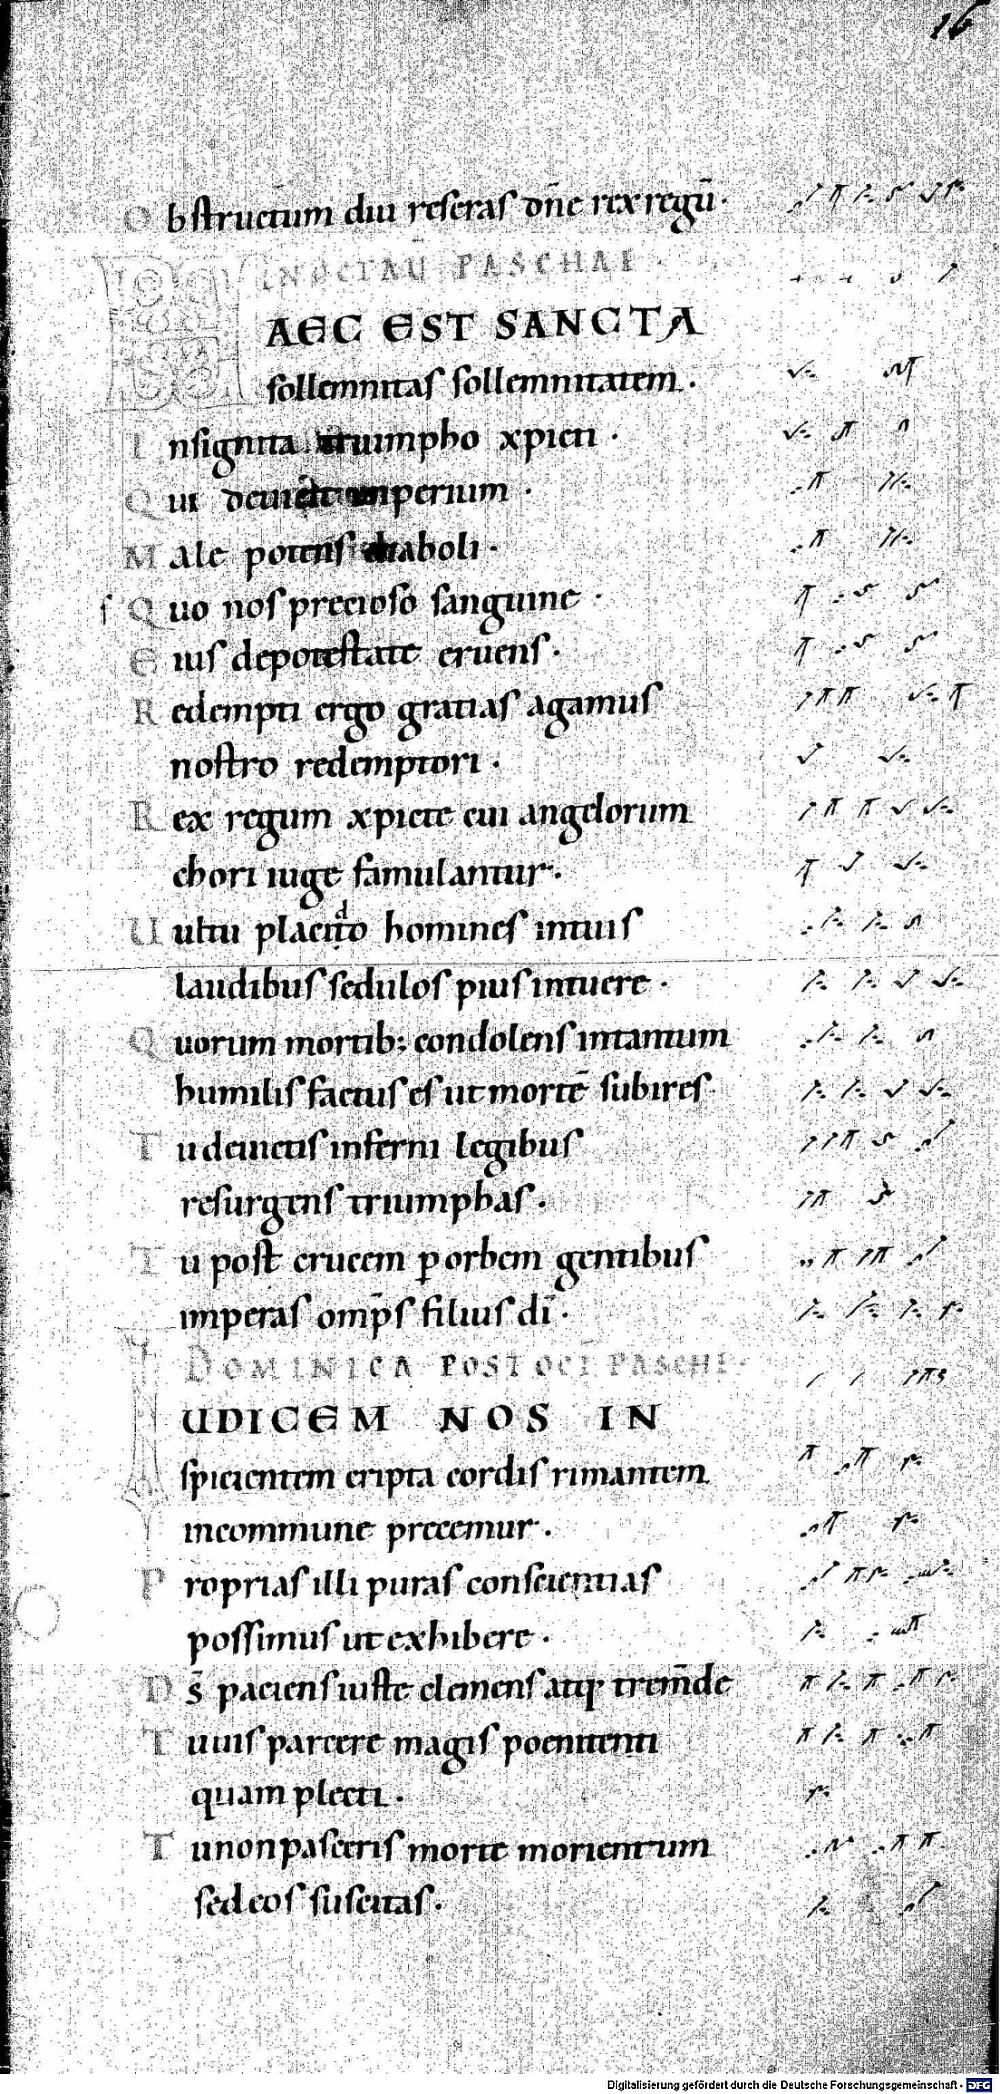 16
Obstructum diu reseras dn̄e rex regū·
IN OCTAŪ PASCHAE·
HAEC EST SANCTA
sollemnitas sollemnitatem·
Insignita triumpho xpicti·
Qui deuicit imperium·
Male potens diaboli·
s Quo nos precioso sanguine·
Eius depotestate eruens·
Redempti ergo gratias agamus
nostro redemptori·
Rex regum xpicte cui angelorum
chori iuge famulantur·
Uultu placito homines intuis
laudibus sedulos pius intuere·
Quorum mortib; condolens intantum
humilis factus es ut mortē subires·
Tu deuictis inferni legibus
resurgens triumphas·
Tu post crucem ꝑ orbem gentibus
imperas omp̄s filius dī·
DOMINICA POST OCT̄ PASCHE·
IUDICEM NOS IN
spicientem cripta cordis rimantem
incommune precemur·
Proprias illi puras conscientias
possimus ut exhibere·
Ds̄ paciens iuste clemens atq· trem̄de
Tuuis parcere magis poenitenti
quam plecti·
Tu non pasceris morte morientum
sed eos suscitas·
Digitalisierung gefördert durch die Deutsche Forschungsgemeinschaft - DFG